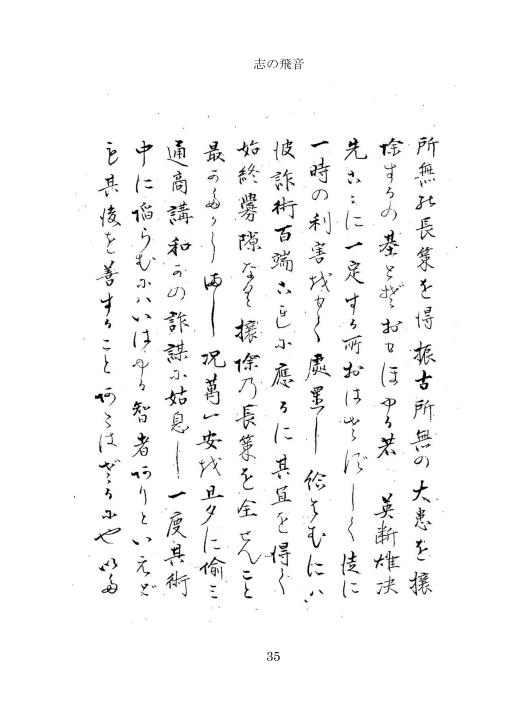 志の飛音
所無the長策を得振古所無の大患を攘
除するの基とぞおもほゆる若　英断雄决
先こゝに一定する所おはさずしく徒に
一時の利害をもく處置し給はむにハ
彼詐術百端これに應るに其宜を得く
始終釁隙なく攘除乃長策を全せんこと
最かたかるし况萬一安を旦夕に偷ミ
通商講和かの詐謀に姑息し一度其術
中に陷らむにハいはゆる智者ありといえど
も其後を善すること あたはざるにや 以
35